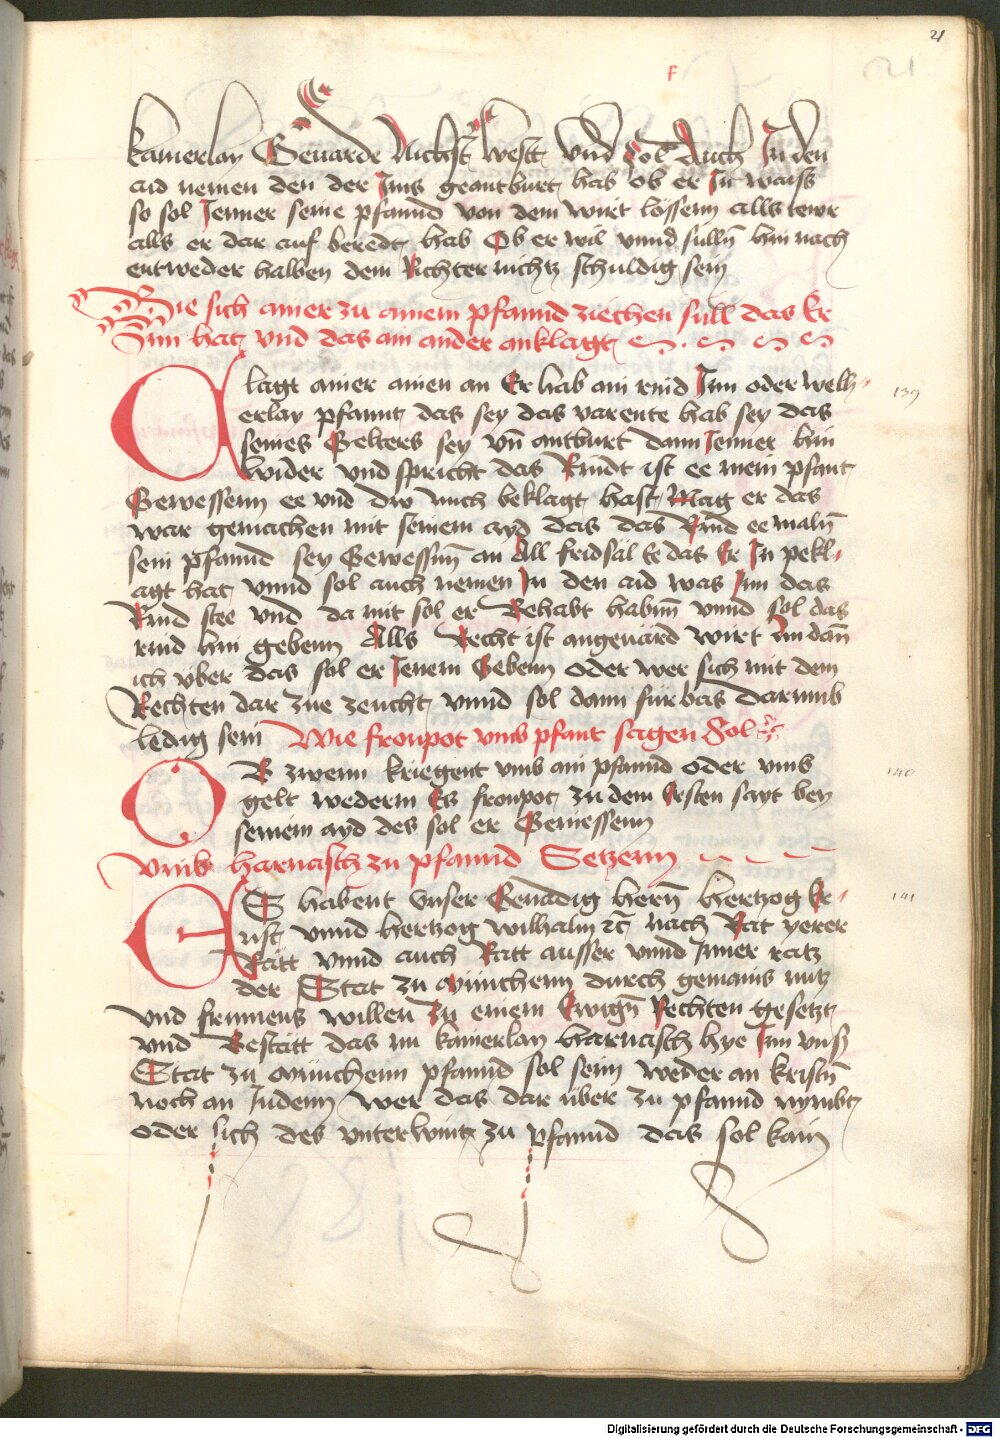 21
21
F
kainerlay Geuarde Nichst West vnd sol Auch In den
aid nemen den der Ims geantburt hab ob er In waiss
so sol Jenner seine pfannd von dem wirt lössenn alls tewr
alls er dar auf beredt hab Ob er wil vnnd sülln hin nach
entweder halben dem Richter nichtz schuldig sein
Wie sich ainer zu ainem pfannd ziechen süll das Er
Inn hat vnd das ain ander anklagt
Clagt ainer ainen an Er hab ain rind Inn oder welh
erlay pfannt das sey das varente hab sey das
seines Gelters sey vn antburt dann Jenner hin
wider vnd spricht das Rindt ist ee mein pfant
Gewessenn ee vnd dw mich beklagt hast Mag er das
war gemachen mit seinem ayd das das Rind ee maln
sein pfannd sey Gewessnn an All fridsäl Ee das Er In pekl
agt hat vnnd sol auch nemen In den aid was Inn das
Rind stee vnd da mit sol er Behabt habnn vnnd sol das
rind hin gebenn Alls Recht ist angeuärd wirt Im dann
ich vber das sol er Jenem Gebenn oder wer sich mit dem
Rechten dar zue zeucht vnnd sol dann fürbas darumb
ledig sein Wie fronpot vmb pfant sagen Sol
139
OB zwenn kriegent vmb ain pfannd oder vmb
gelt wederm Es fronpot zu dem Ersten sayt bey
seinem ayd des sol er Geniessenn
140
Vmb harnasch zu pfannd Setzenn
ES habent vnser Genädig hern hertzog Er
nst vnnd hertzog wilhalm etc nach Rat yerer
Rätt vnnd auch Ratt ausser vnnd Inner ratz
der Stat zu Münchenn durch gemains nutz
vnd frummens willen Zu einem Ewign Rechten gesetzt
vnd Bestätt das nu kainerlay harnasch hye Inn vnsser
Stat zu Münchenn pfannd sol sein weder an kristn
noch an Judenn wer das dar über zu pfannd nymbt
oder sich des vnterwint zu pfannd das sol kain
141
Digitalisierung gefördert durch die Deutsche Forschungsgemeinschaft - DFG